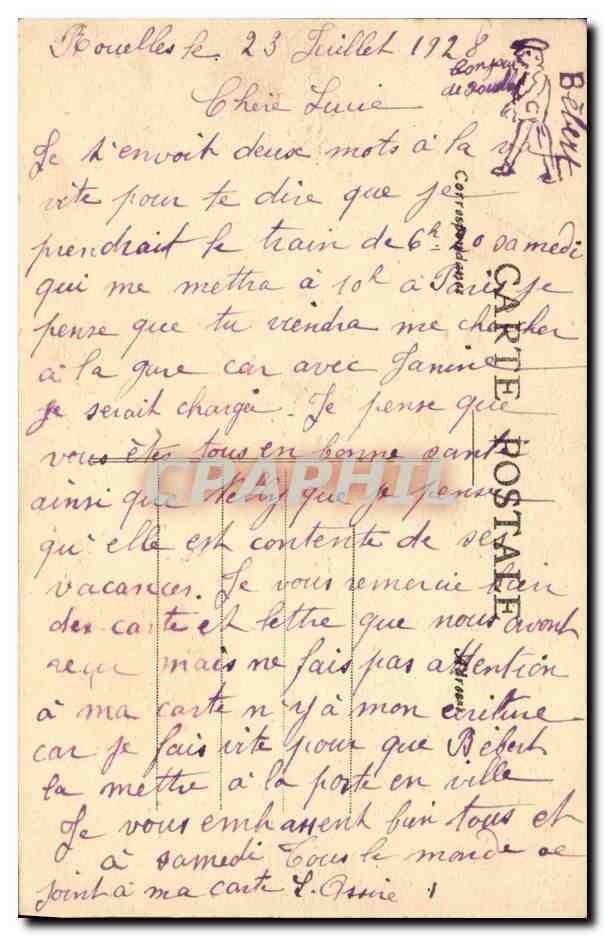 Rouelles le 23 Juillet 1928
Chère Lucie
Je t'envoit deux mots à la va
vite pour te dire que je
prendrait le train de 6h samedi
qui me mettra à 10h à Paris je
pense que tu viendra me chercher
à la gare car avec Janine
je serait chargée. Je pense que
vous êtes tous en bonne santé
ainsi que que je pense
qu'elle est contente de ses
vacances. Je vous remercie bien
des carte et lettre que nous avont
reçu mais ne fais pas attention
à ma carte n'y à mon écriture
car je fais vite pour que Bébert
la mettre à la porte en ville
Je vous embrassent bien tous et
à samedi Tous le monde se
joint à ma carte
bonjour
de
Bébert
CARTE POSTALE
Correspondance
Adresse
CPAPHIL